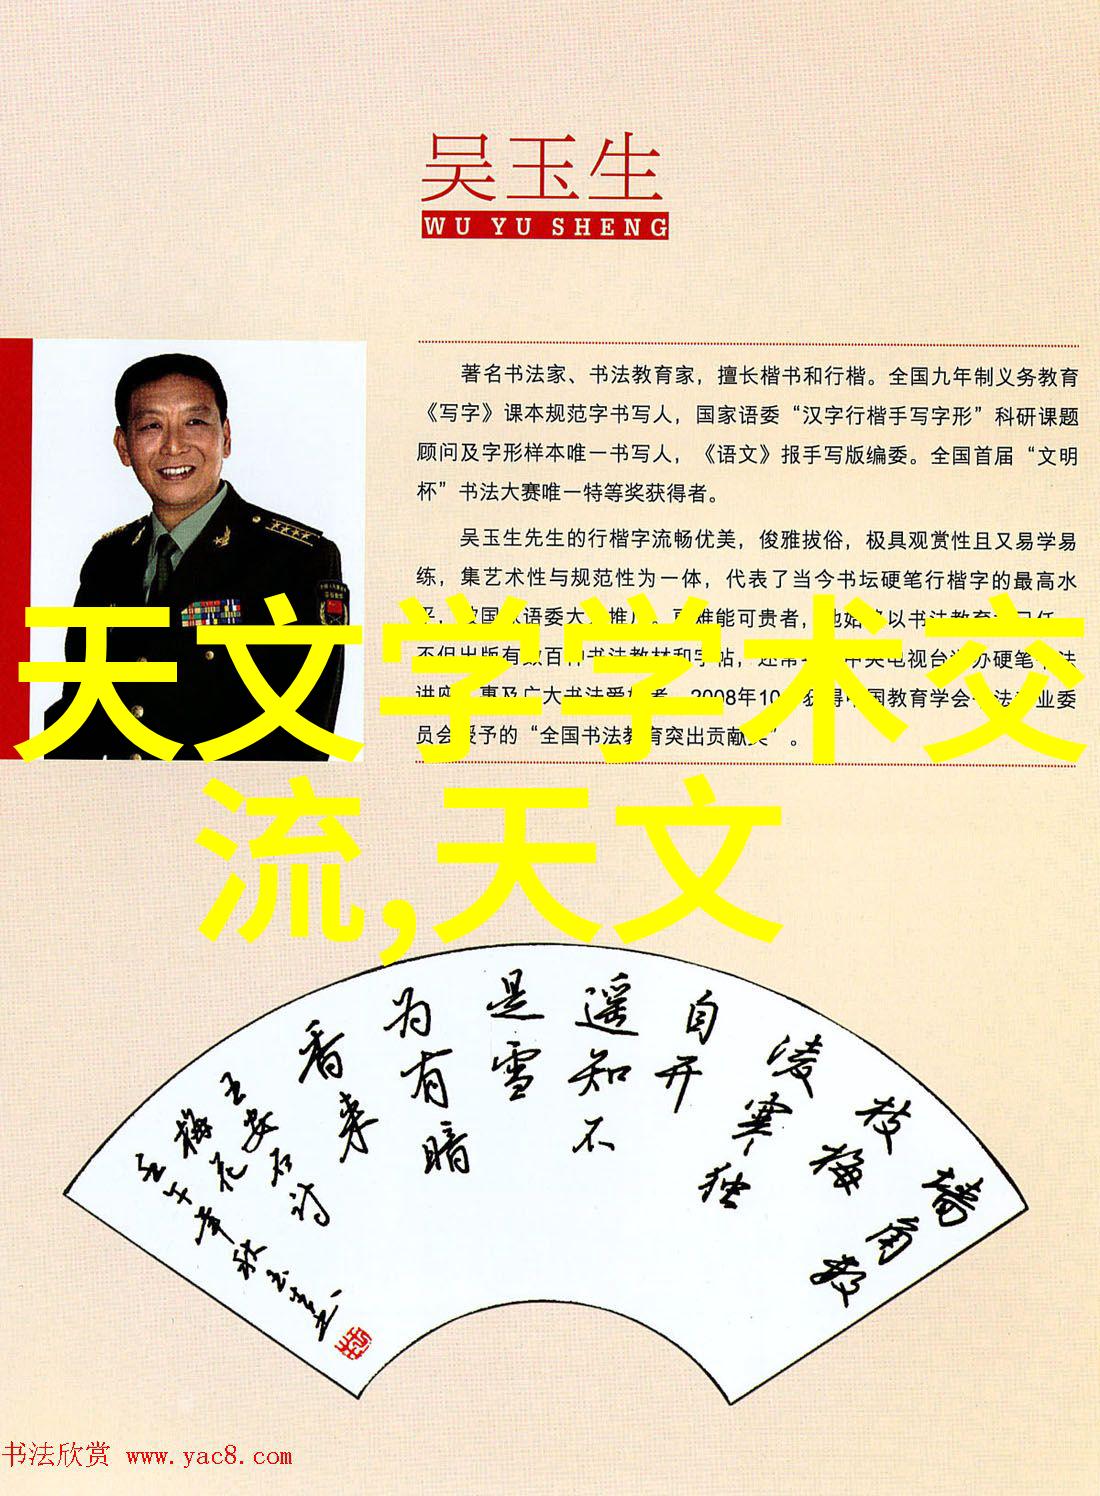 吴玉生
WU YU SHENG
著名书法家、书法教育家，擅长楷书和行楷。全国九年制义务教育
《写字》课本规范字书写人，国家语委“汉字行楷手写字形”科研课题
顾问及字形样本唯一书写人，《语文》报手写版编委。全国首届“文明
杯”书法大赛唯一特等奖获得者。
吴玉生先生的行楷字流畅优美，俊雅拔俗，极具观赏性且又易学易
练，集艺术性与规范性为一体，代表了当今书坛硬笔行楷字的最高水
国 语委大 推 难能可贵者， 以书法教育
不但出版有数百种书法教材和字帖， 中央电视台 办硬笔 法
讲座 惠及广大书法爱 者 2008年10 获得中国教育学会 法 业委
员会授予的“全国书法教育突出贡献奖”。
天文学学术交
流,天文
墙角数
枝梅
凌寒独
自开
遥知不
是雪
为有暗
香来
王安石诗
梅花
壬午年秋
书法欣赏 www.yac8.com